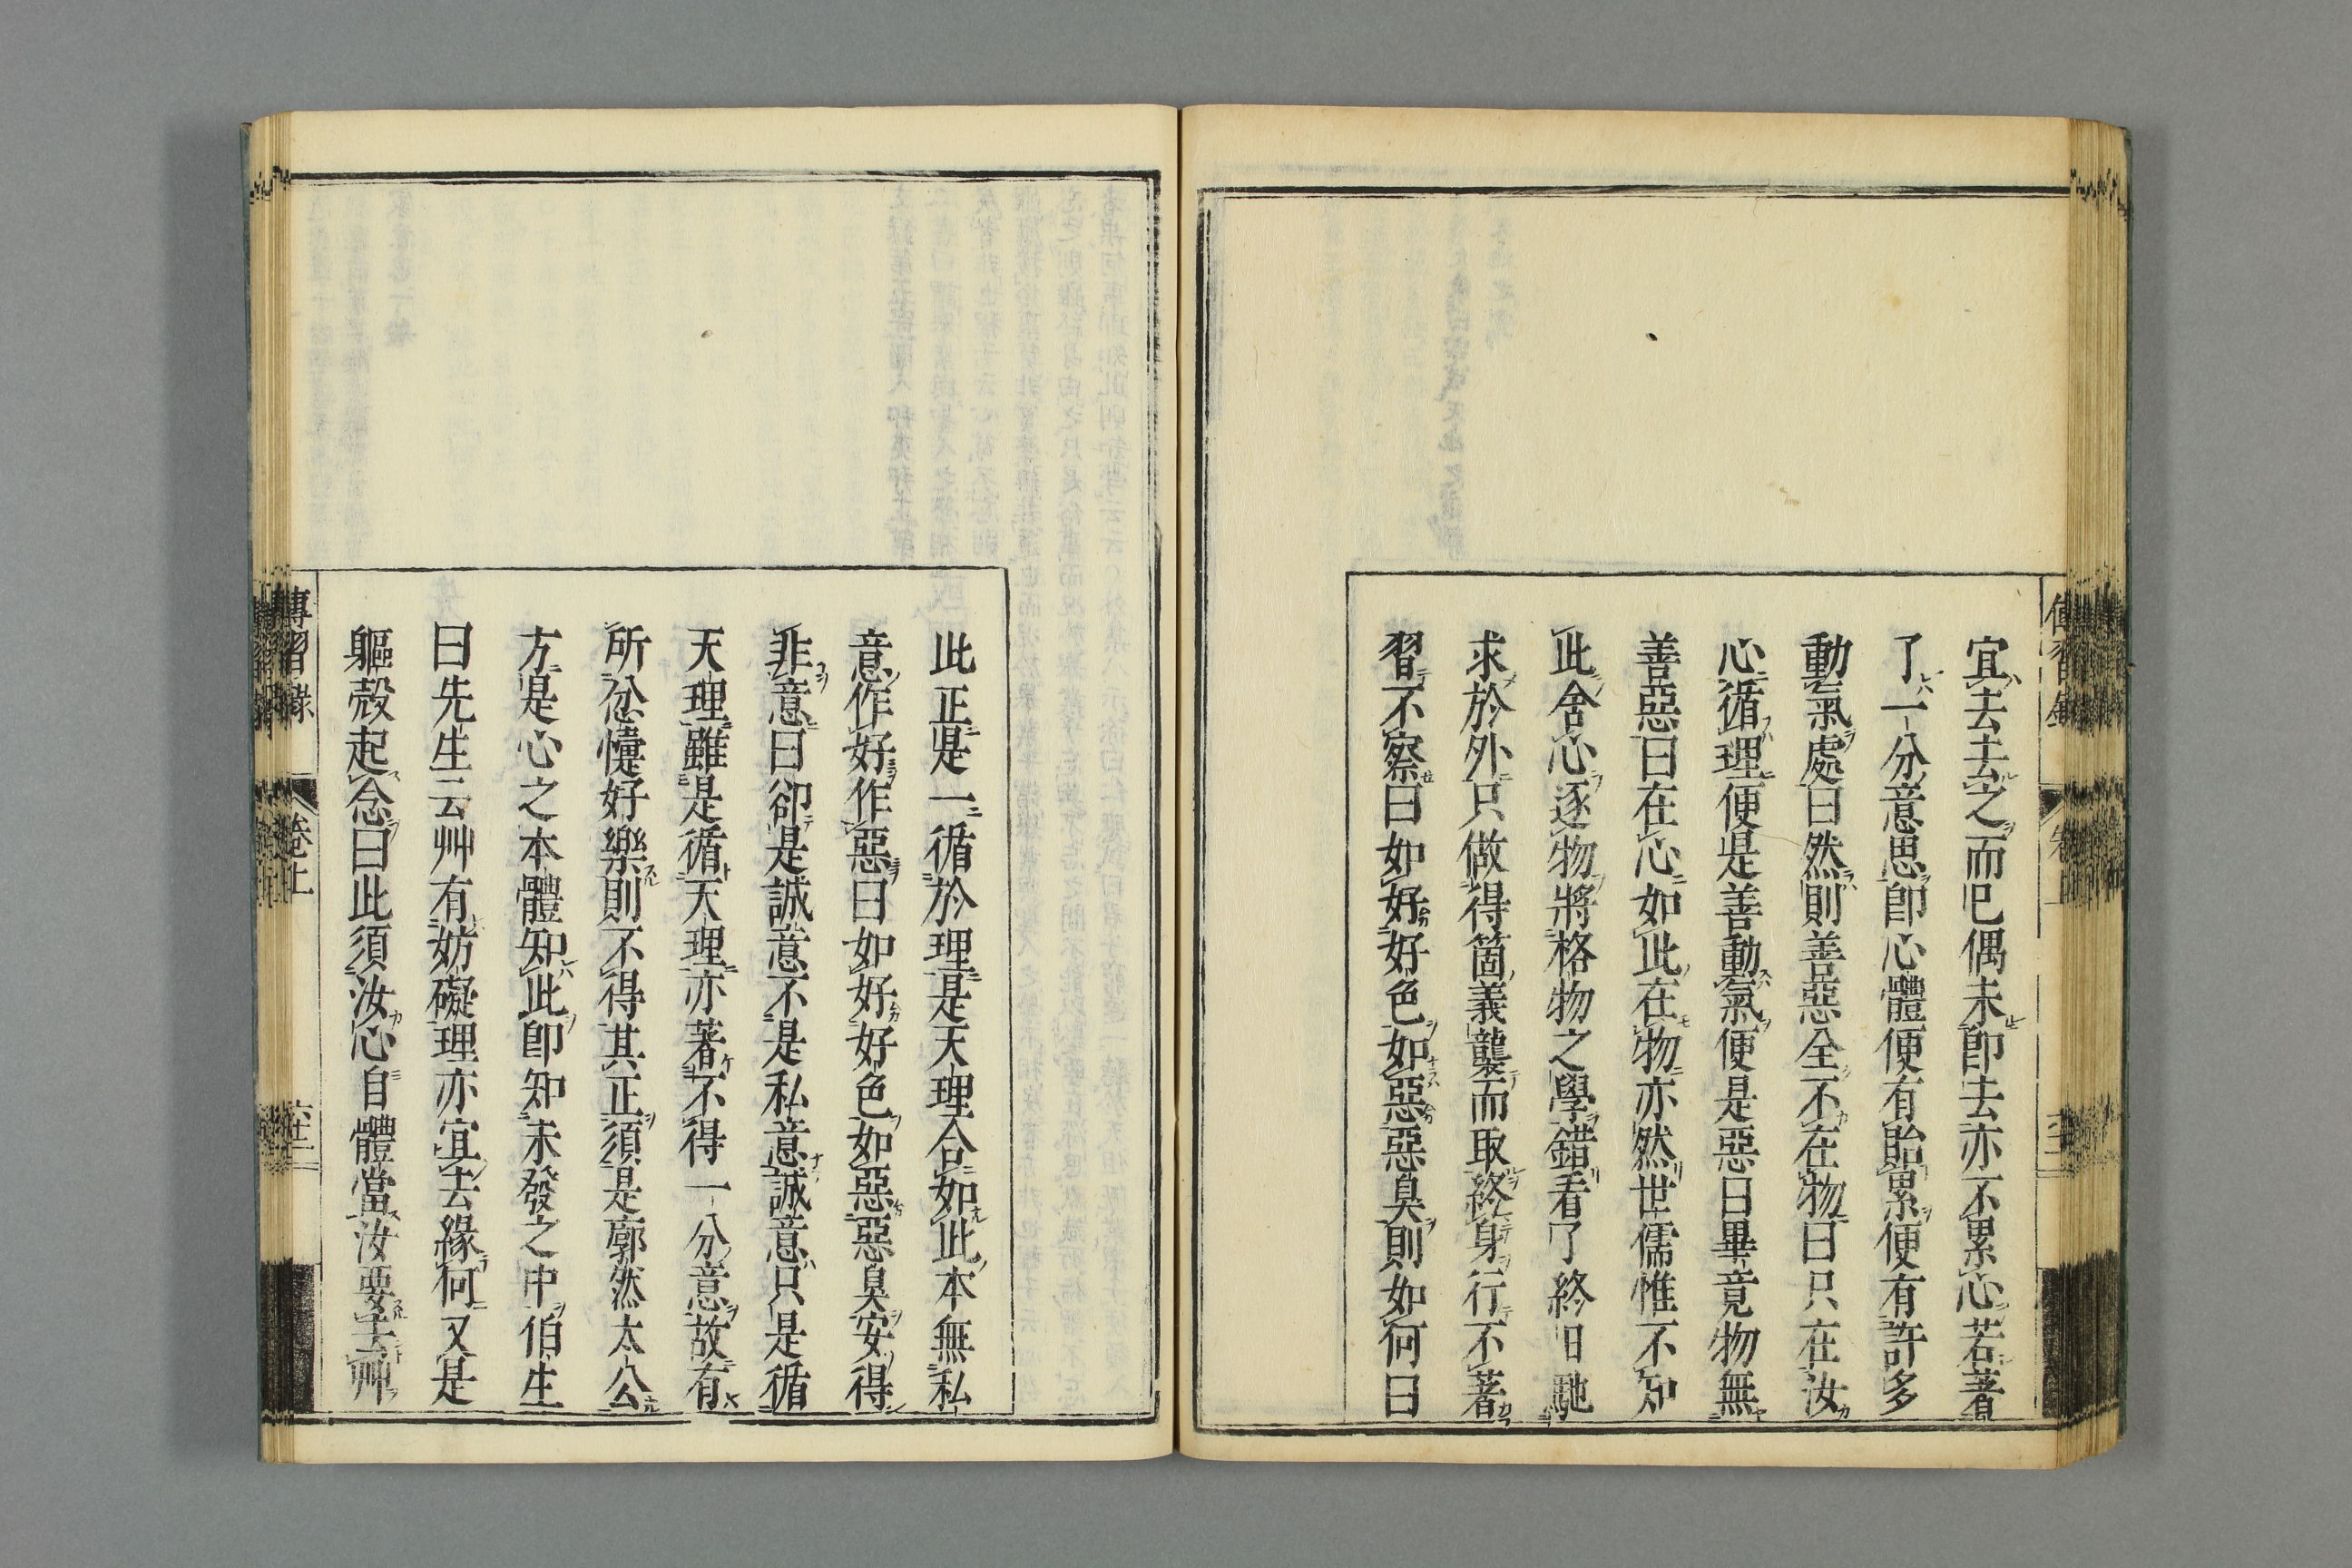 宜去去之而已偶未卽去亦不累心若著
了一分意思卽心體便有貽累便有許多
動氣處曰然則善惡全不在物曰只在汝
心循理便是善動氣便是惡曰畢竟物無
善惡曰在心如此在物亦然世儒惟不知
此舍心逐物將格物之學錯看了終日馳
求於外只做得箇義襲而取終身行不著
習不察曰如好好色如惡惡臭則如何曰
此正是一循於理是天理合如此本無私
意作好作惡曰如好好色如惡惡臭安得
非意曰卻是誠意不是私意誠意只是循
天理雖是循天理亦著不得一分意故有
所忿懥好樂則不得其正須是廓然太公
方是心之本體知此卽知未發之中伯生
曰先生云艸有妨礙理亦宜去緣何又是
軀殼起念曰此須汝心自體當汝要去艸
傳習錄
卷上